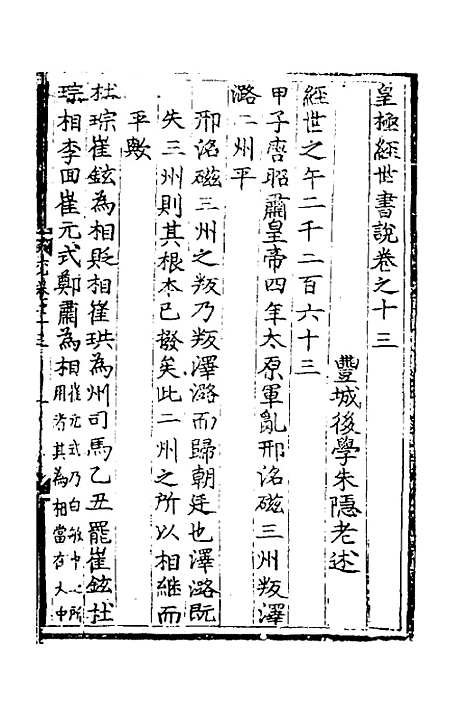 皇極經世書說卷之十三
豐城後學朱隱老述
經世之午二千二百六十三
甲子唐昭肅皇帝四年太原軍亂邢洺磁三州叛澤
潞二州平
邢洺磁三州之叛乃叛澤潞而歸朝廷也澤潞既
失三州則其根本已撥矣此二州之所以相繼而
平歟
杜琮崔鉉為相貶相崔珙為州司馬乙丑罷崔鉉杜
琮相李回崔元式鄭肅為相崔元式乃白敏中所
用者其為相當在大中